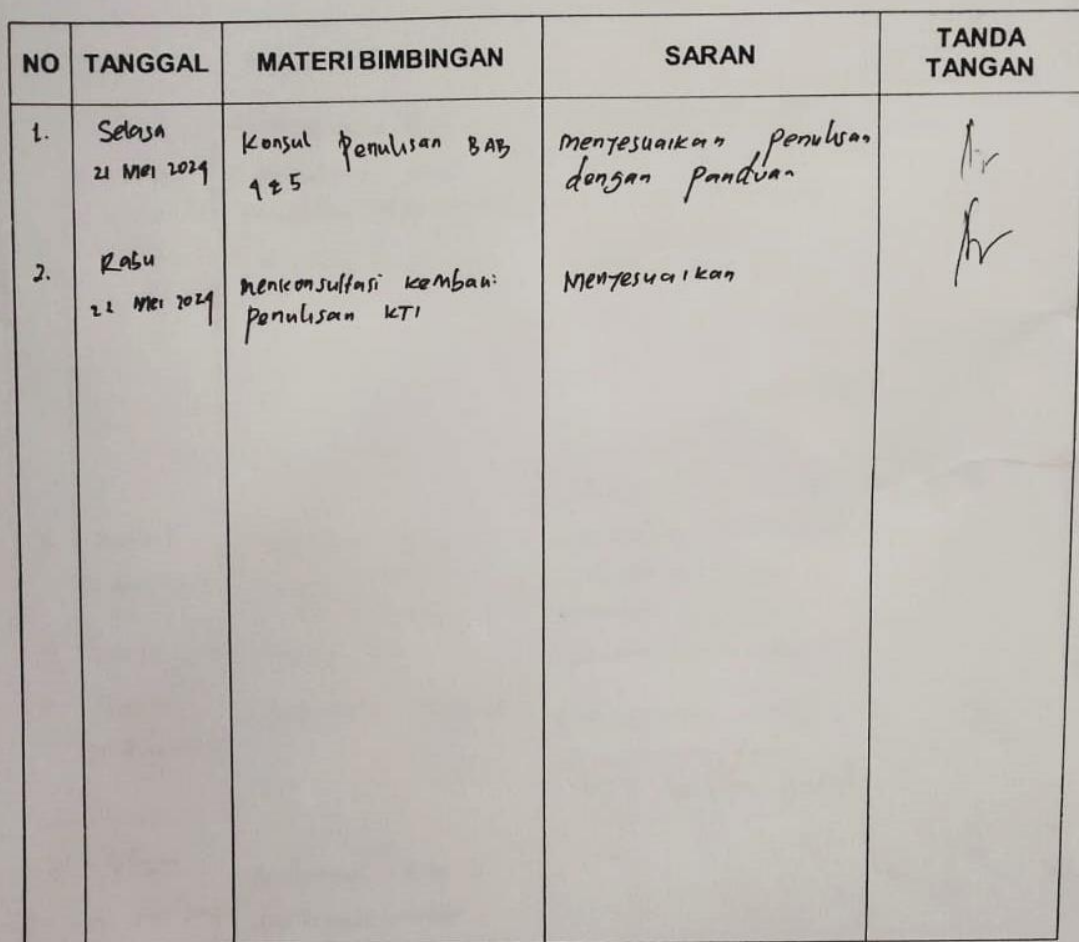 NO TANGGAL MATERI BIMBINGAN SARAN TANDA TANGAN
1. Selasa
21 Mei 2024
Konsul Penulisan BAB
4 & 5
Menyesuaikan penulisan
dengan panduan
2. Rabu
22 Mei 2024
Menkonsultasi kembali
Penulisan KTI
Menyesuaikan